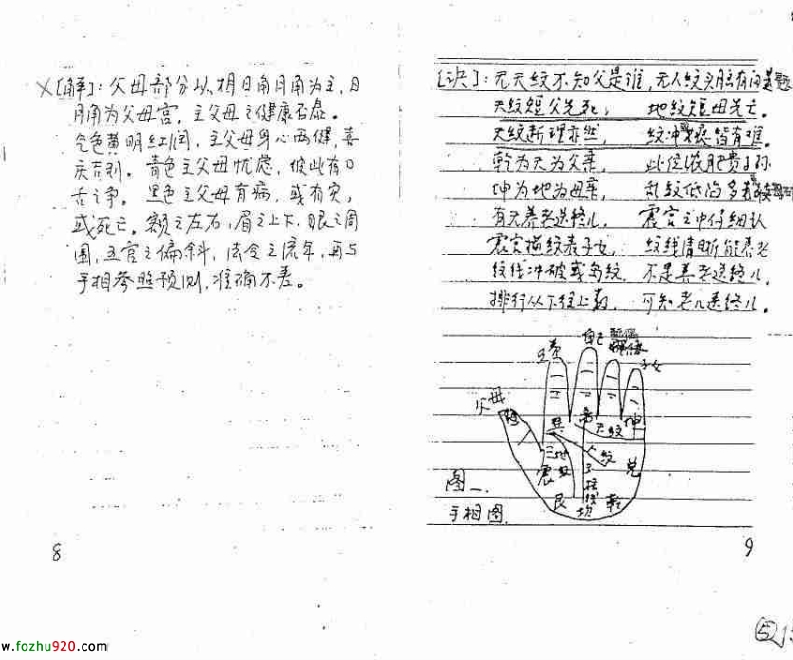 ×〔解〕：父母部分以相日角月角为主，日
月角为父母宫，主父母之健康否虚。
气色黄明红润，主父母身心两健，喜
庆吉利。青色主父母忧虑，彼此有口
舌之争。黑色主父母有病，或有灾，
或死亡。额之左右，眉之上下，眼之周
围，五官之偏斜，法令之流年，再与
手相参照预测，准确不差。
8
〔诀〕：无天纹不知父是谁，无人纹头脑有问题
天纹短父先死，地纹短母先亡。
天纹断理亦然，纹冲皆有难。
乾为天为父亲，此位
坤为地为母亲，乱纹低陷多
有无养老送终儿，震宫之中仔细认
震宫横纹表子女，纹线清晰能养老
纹线冲破或岛纹，不是养老送终儿
排行从下往上数，可知老几送终儿。
父母
自己
子女
巽
离
坤
天纹
人纹
地纹
震
兑
艮
坎
乾
图一
手相图
9
⑤
w.fozhu920.com